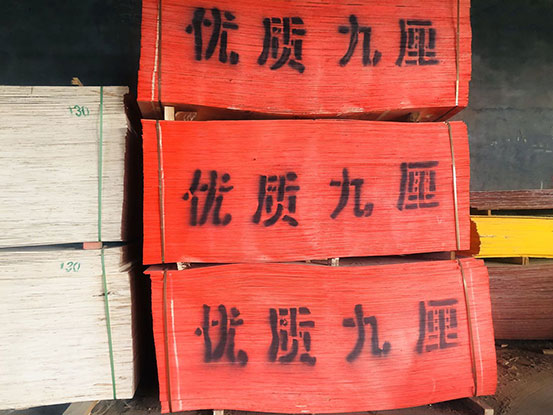 优质九厘
130
优质九厘
130
优质九厘